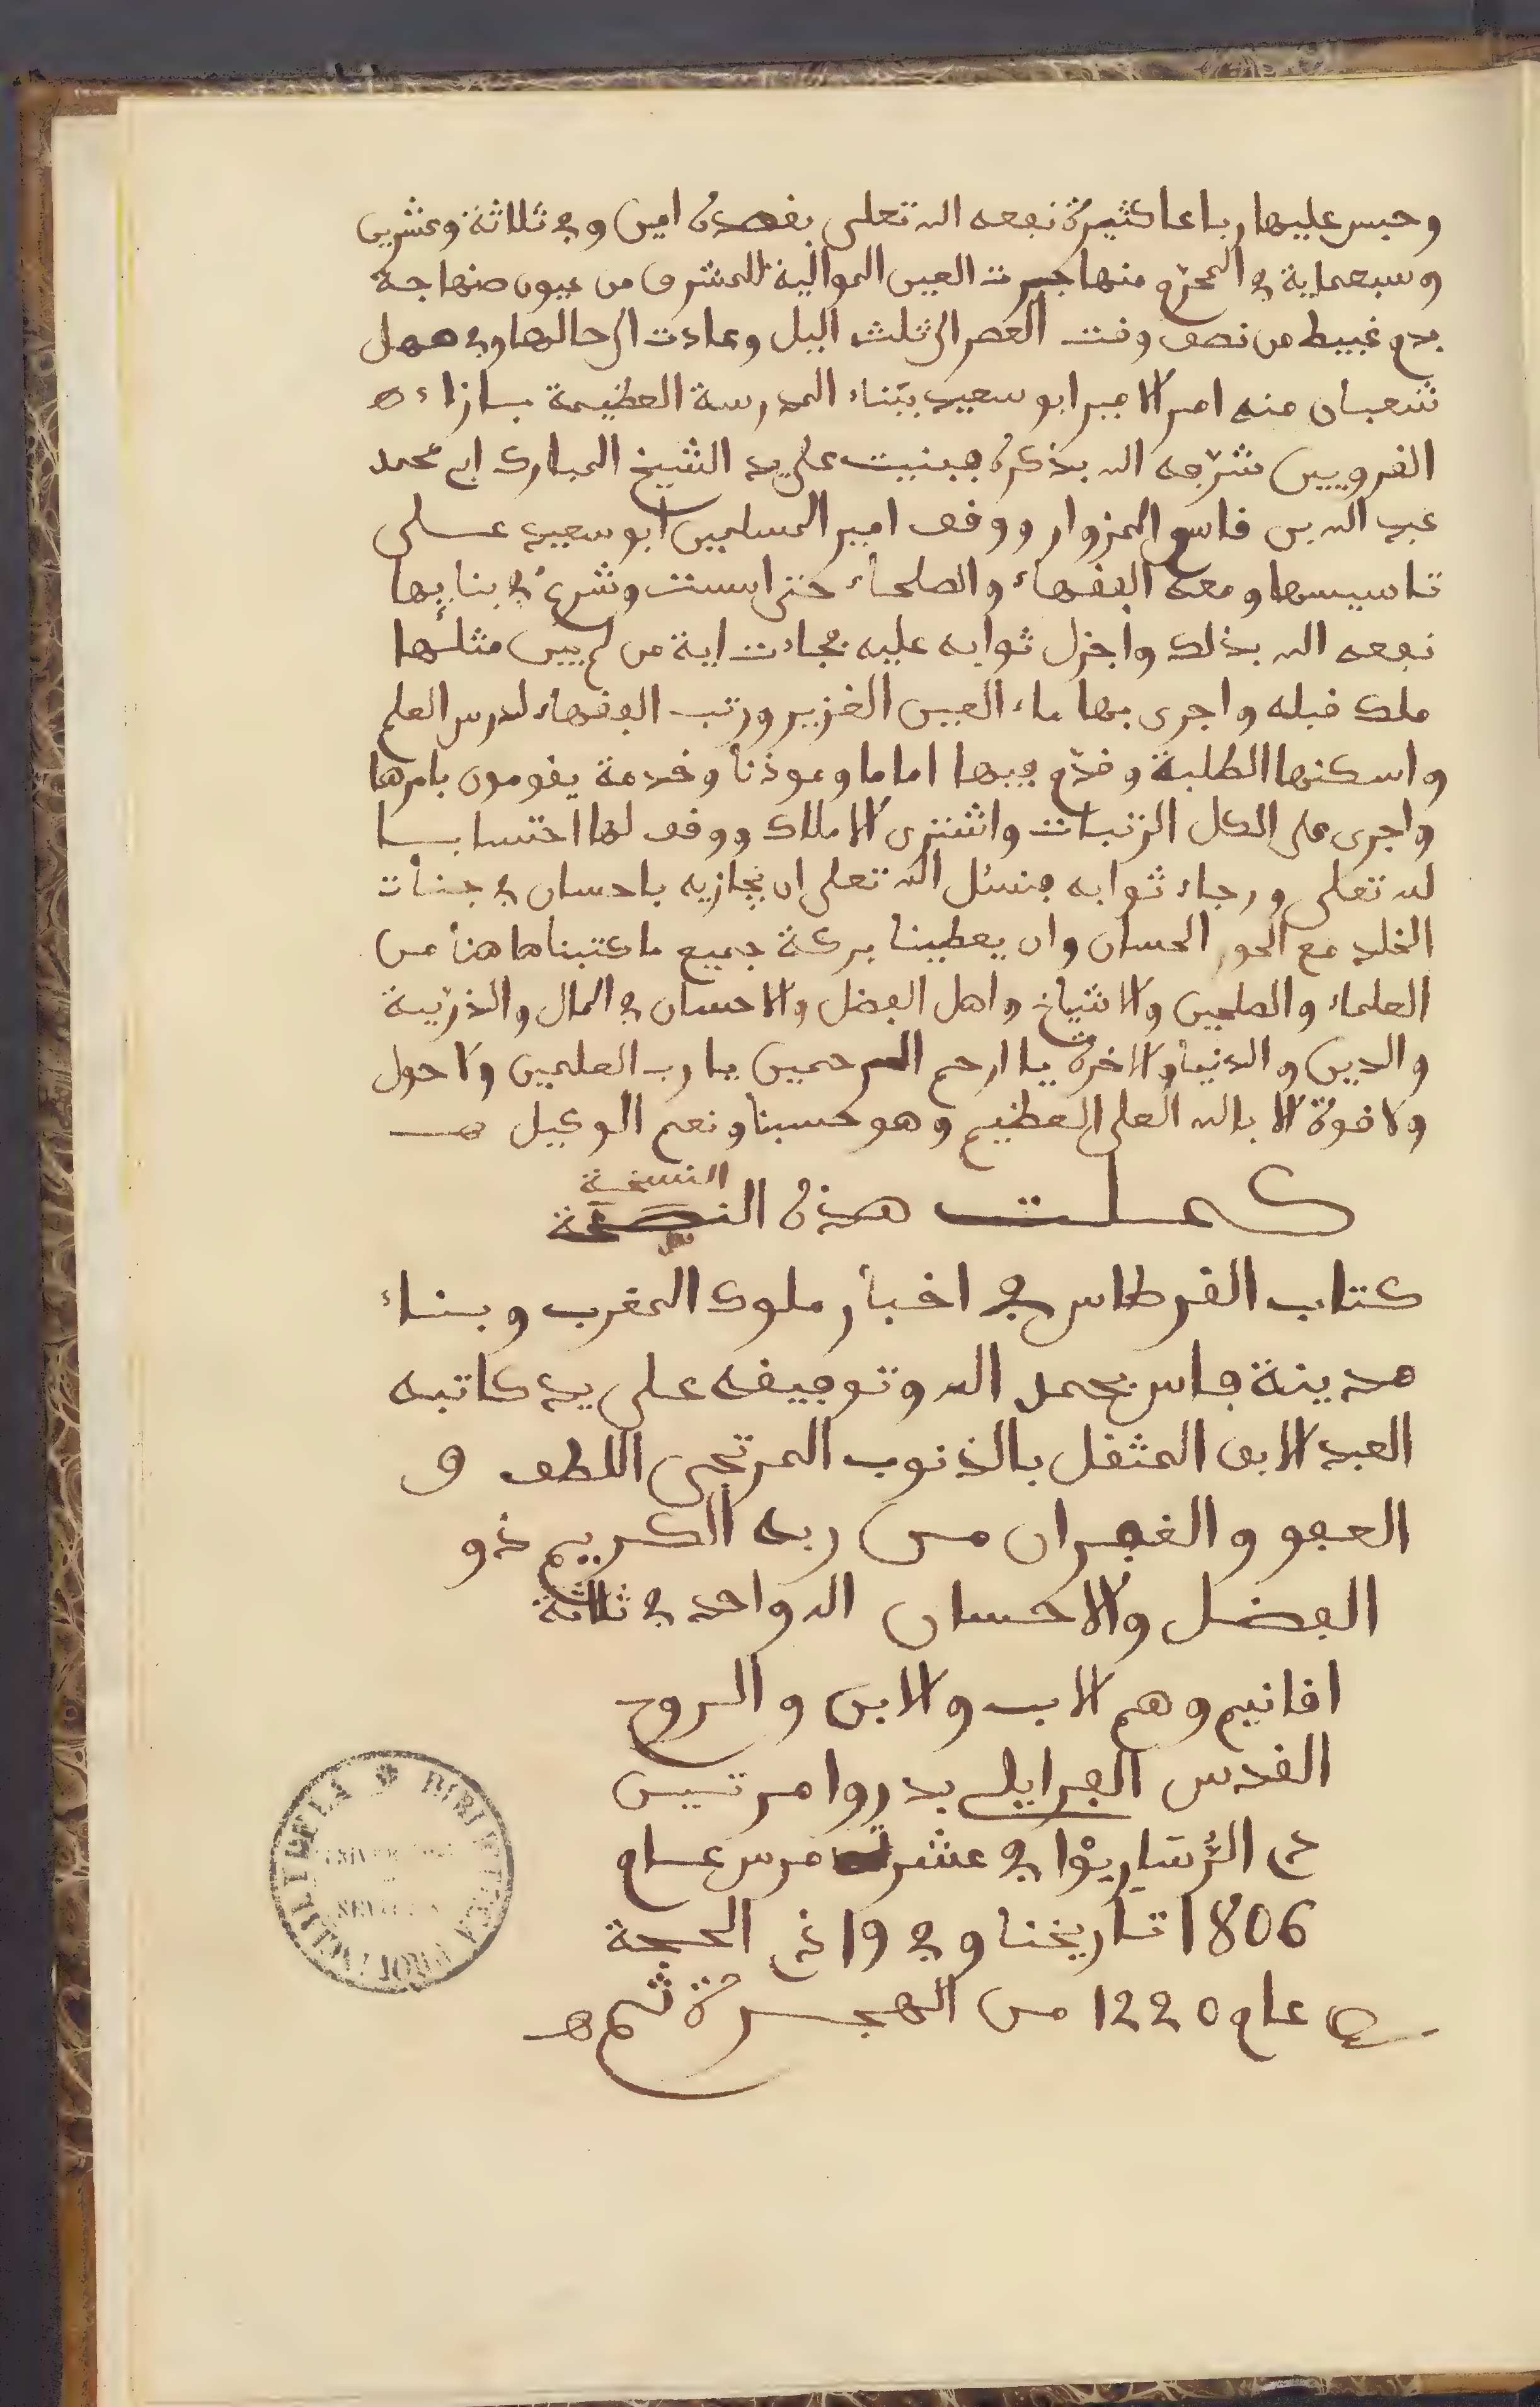 وحبس عليها رباعا كثيرة نفعه الله تعلى بقصده امين وفي ثلاثة وعشرين
وسبعماية في المحرم منها جرت العين الموالية للمشرق من عيون صنهاجة
بدم غبيط من نصف وقت العصر الى ثلث اليل وعادت الى حالها وفي مهل
شعبان منه امر الامير ابو سعيد ببناء المدرسة العظيمة بازاء
القرويين شرفه الله بذكره فبنيت على يد الشيخ المبارك ابي محمد
عبد الله بن قاسم المزوار ووقف امير المسلمين ابو سعيد على
تاسيسها ومعه الفقهاء والصلحاء حتى اسست وشرع في بنايها
نفعه الله بذلك واجزل ثوابه عليه فجاءت اية من لم يبن مثلها
ملك قبله واجرى بها ماء العين الغزير ورتب الفقهاء لدرس العلم
واسكنها الطلبة وقدم فيها اماما وموذنا وخدمة يقومون بامرها
واجرى على الكل الرتبات واشترى الاملاك ووقف لها احتسابا
لله تعلى ورجاء ثوابه فنسئل الله تعلى ان يجازيه باحسان في جنات
الخلد مع الحور الحسان وان يعطينا بركة جميع ما كتبناها هنا من
العلماء والصلحين والاشياخ واهل الفضل والاحسان في المال والذرية
والدين والدنيا والاخرة يا ارحم الرحمين يا رب العلمين ولا حول
ولا قوة الا بالله العلي العظيم وهو حسبنا ونعم الوكيل
النسخة
كملت هذه
كتاب القرطاس في اخبار ملوك المغرب وبناء
مدينة فاس بحمد الله وتوفيقه على يد كاتبه
العبد الابق المثقل بالذنوب المرتجي اللطف و
العفو والغفران من ربه الكريم ذو
الفضل والاحسان الله واحد في ثلاثة
اقانيم وهم الاب والابن والروح
القدس الفرايلي بدروا مرتين
دي الرساريوا في عشر مرس عام
1806 تاريخنا وفي 19 ذي الحجة
عام 1220 من الهجرة ثم
BIBLIOTECA PROVINCIAL
UNIVERSIDAD
SEVILLA